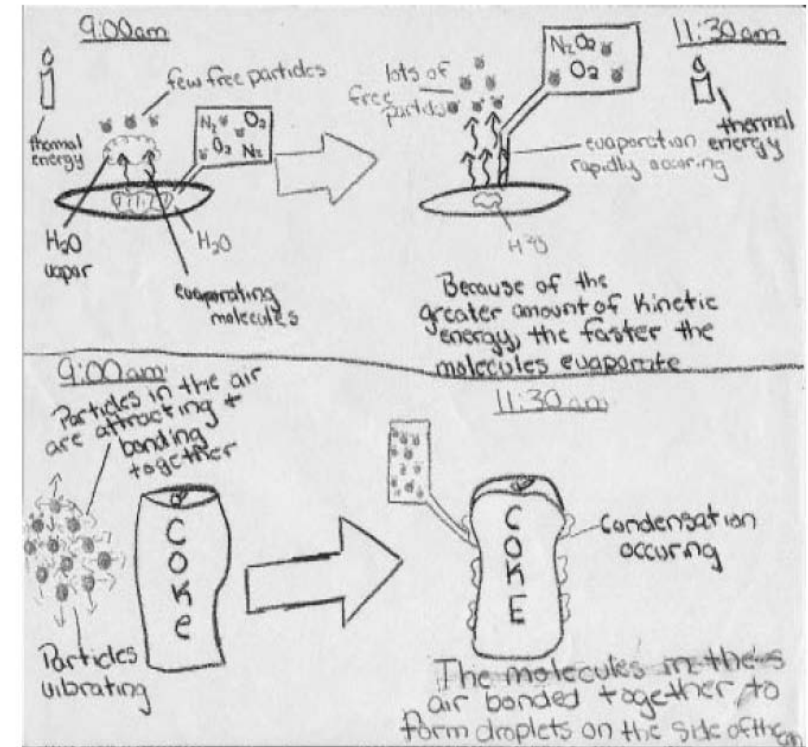 9:00am
few free particles
thermal
energy
N₂ O₂
O₂ N₂
H₂O
vapor
H₂O
evaporating
molecules
11:30am
lots of
free
particles
N₂ O₂
O₂
thermal
energy
evaporation
rapidly occuring
H₂O
Because of the
greater amount of Kinetic
energy, the faster the
molecules evaporate
9:00am
Particles in the air
are attracting +
bonding
together
COKe
Particles
vibrating
11:30am
COKE
Condensation
occuring
The molecules in the
air bonded together to
form droplets on the side of the can